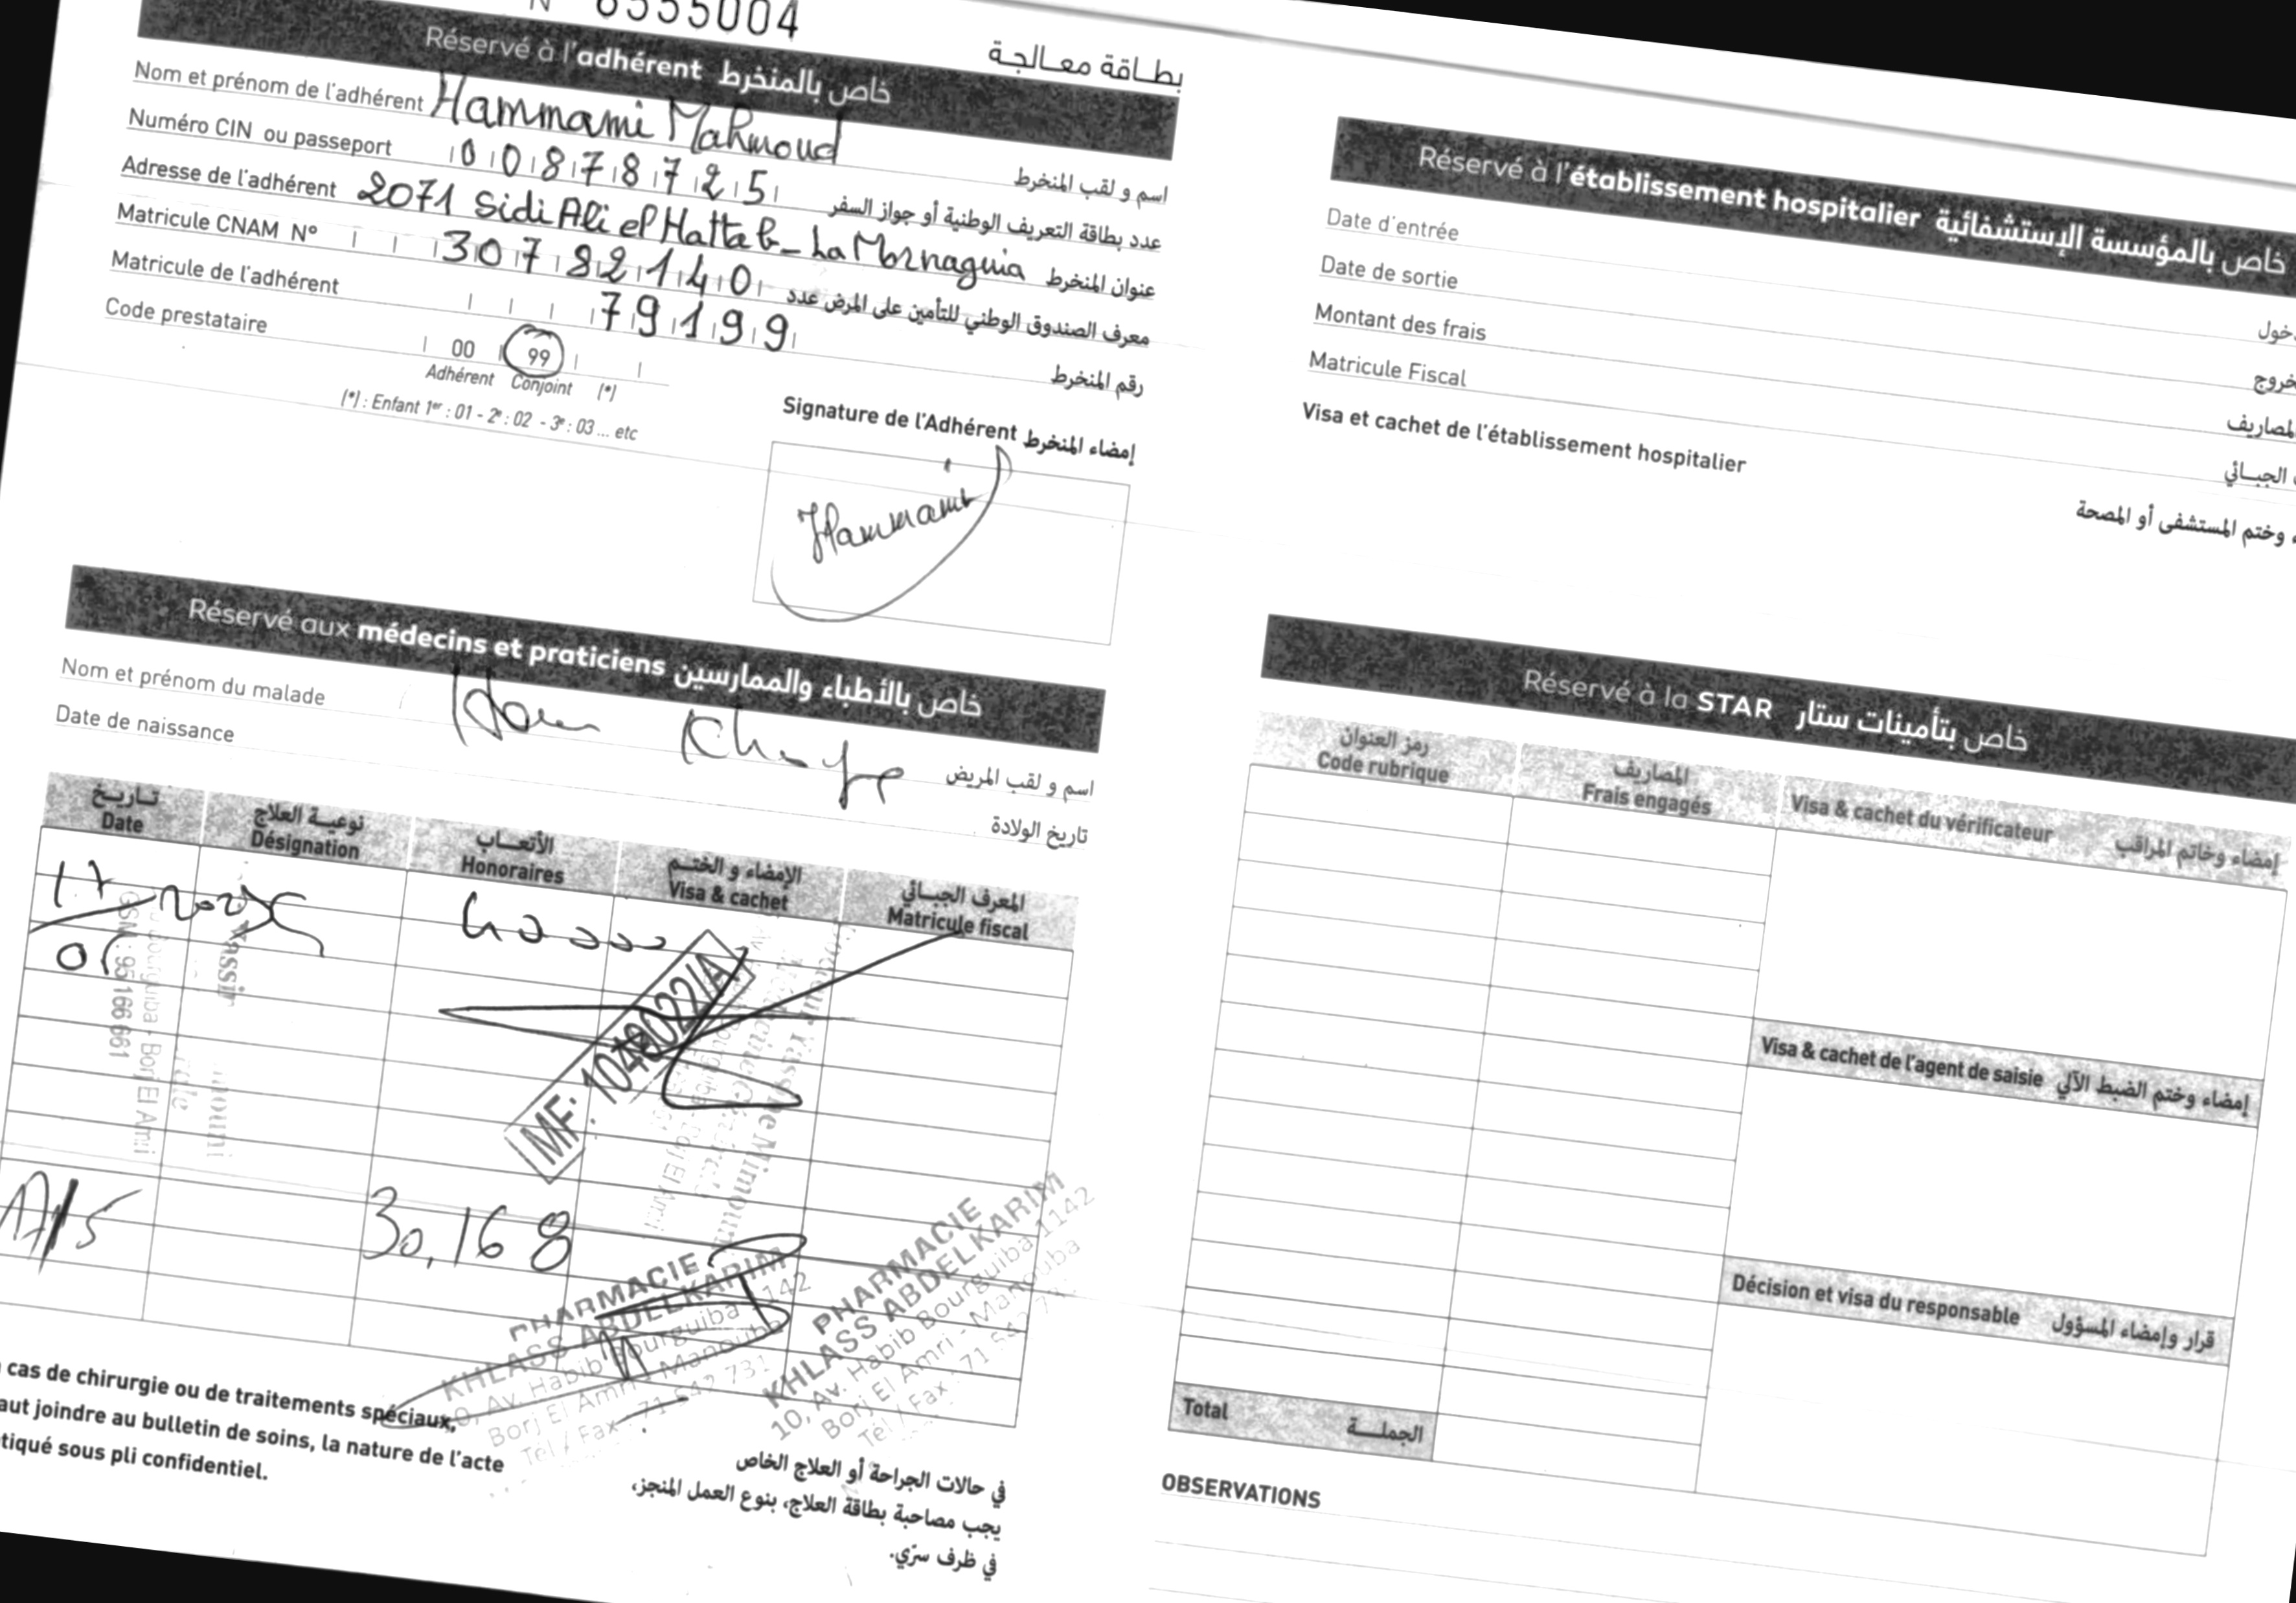 بطاقة معالجة
خاص بالمنخرط Réservé à l'adhérent
Nom et prénom de l'adhérent Hammami Mahmoud اسم و لقب المنخرط
Numéro CIN ou passeport 00878725 عدد بطاقة التعريف الوطنية أو جواز السفر
Adresse de l'adhérent 2071 Sidi Ali el Hattab - La Mornaguia عنوان المنخرط
Matricule CNAM N° 30782140 معرف الصندوق الوطني للتأمين على المرض عدد
Matricule de l'adhérent 79199 رقم المنخرط
Code prestataire 00 99
Adhérent Conjoint (*)
(*) : Enfant 1er : 01 - 2e : 02 - 3e : 03 ... etc
Signature de l'Adhérent إمضاء المنخرط
Hammami
Réservé aux médecins et praticiens خاص بالأطباء والممارسين
Nom et prénom du malade اسم و لقب المريض
Date de naissance تاريخ الولادة
تاريخ نوعية العلاج الأتعاب الإمضاء و الختم المعرف الجبائي
Date Désignation Honoraires Visa & cachet Matricule fiscal
GSM : 95 166 661
Borj El Amri
30,168
PHARMACIE
KHLASS ABDELKARIM
10, Av. Habib Bourguiba 1142
Borj El Amri - Manouba
PHARMACIE
KHLASS ABDELKARIM
10, Av. Habib Bourguiba 1142
Borj El Amri - Manouba
cas de chirurgie ou de traitements spéciaux,
aut joindre au bulletin de soins, la nature de l'acte
tiqué sous pli confidentiel.
في حالات الجراحة أو العلاج الخاص
يجب مصاحبة بطاقة العلاج، بنوع العمل المنجز،
في ظرف سرّي.
Réservé à l'établissement hospitalier خاص بالمؤسسة الإستشفائية
Date d'entrée
Date de sortie
Montant des frais
Matricule Fiscal
Visa et cachet de l'établissement hospitalier وختم المستشفى أو المصحة
Réservé à la STAR خاص بتأمينات ستار
رمز العنوان المصاريف
Code rubrique Frais engagés Visa & cachet du vérificateur إمضاء وخاتم المراقب
Visa & cachet de l'agent de saisie إمضاء وختم الضبط الآلي
Décision et visa du responsable قرار وإمضاء المسؤول
Total الجملة
OBSERVATIONS